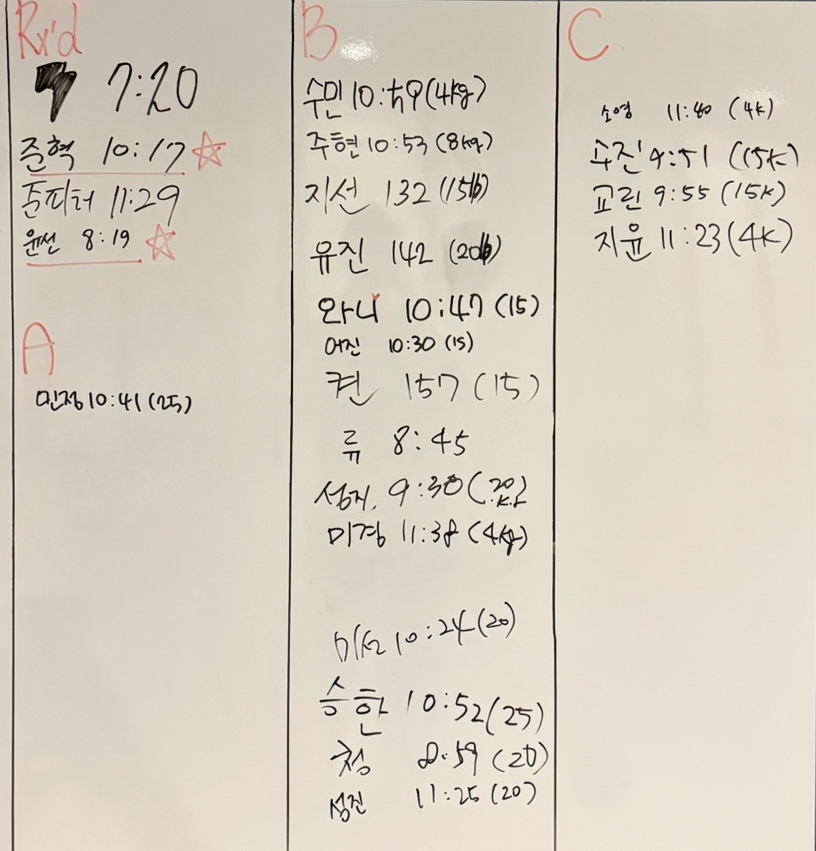 Rx'd
7:20
준혁 10:17
준피터 11:29
윤선 8:19
A
민정 10:41 (25)
B
수민 10:49 (4kg)
주현 10:53 (8kg)
지선 132 (15lb)
유진 142 (20lb)
와니 10:47 (15)
어진 10:30 (15)
켠 157 (15)
류 8:45
성지. 9:30 (20k.g)
미경 11:38 (4kg)
10:24 (20)
승한 10:52 (25)
청 8:59 (20)
성진 11:25 (20)
C
소영 11:40 (4k)
수진 9:51 (15k)
교린 9:55 (15k)
지윤 11:23 (4k)